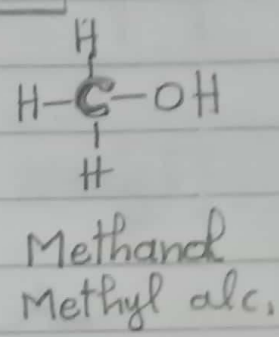 H
H-C-OH
H
Methanol
Methyl alc.